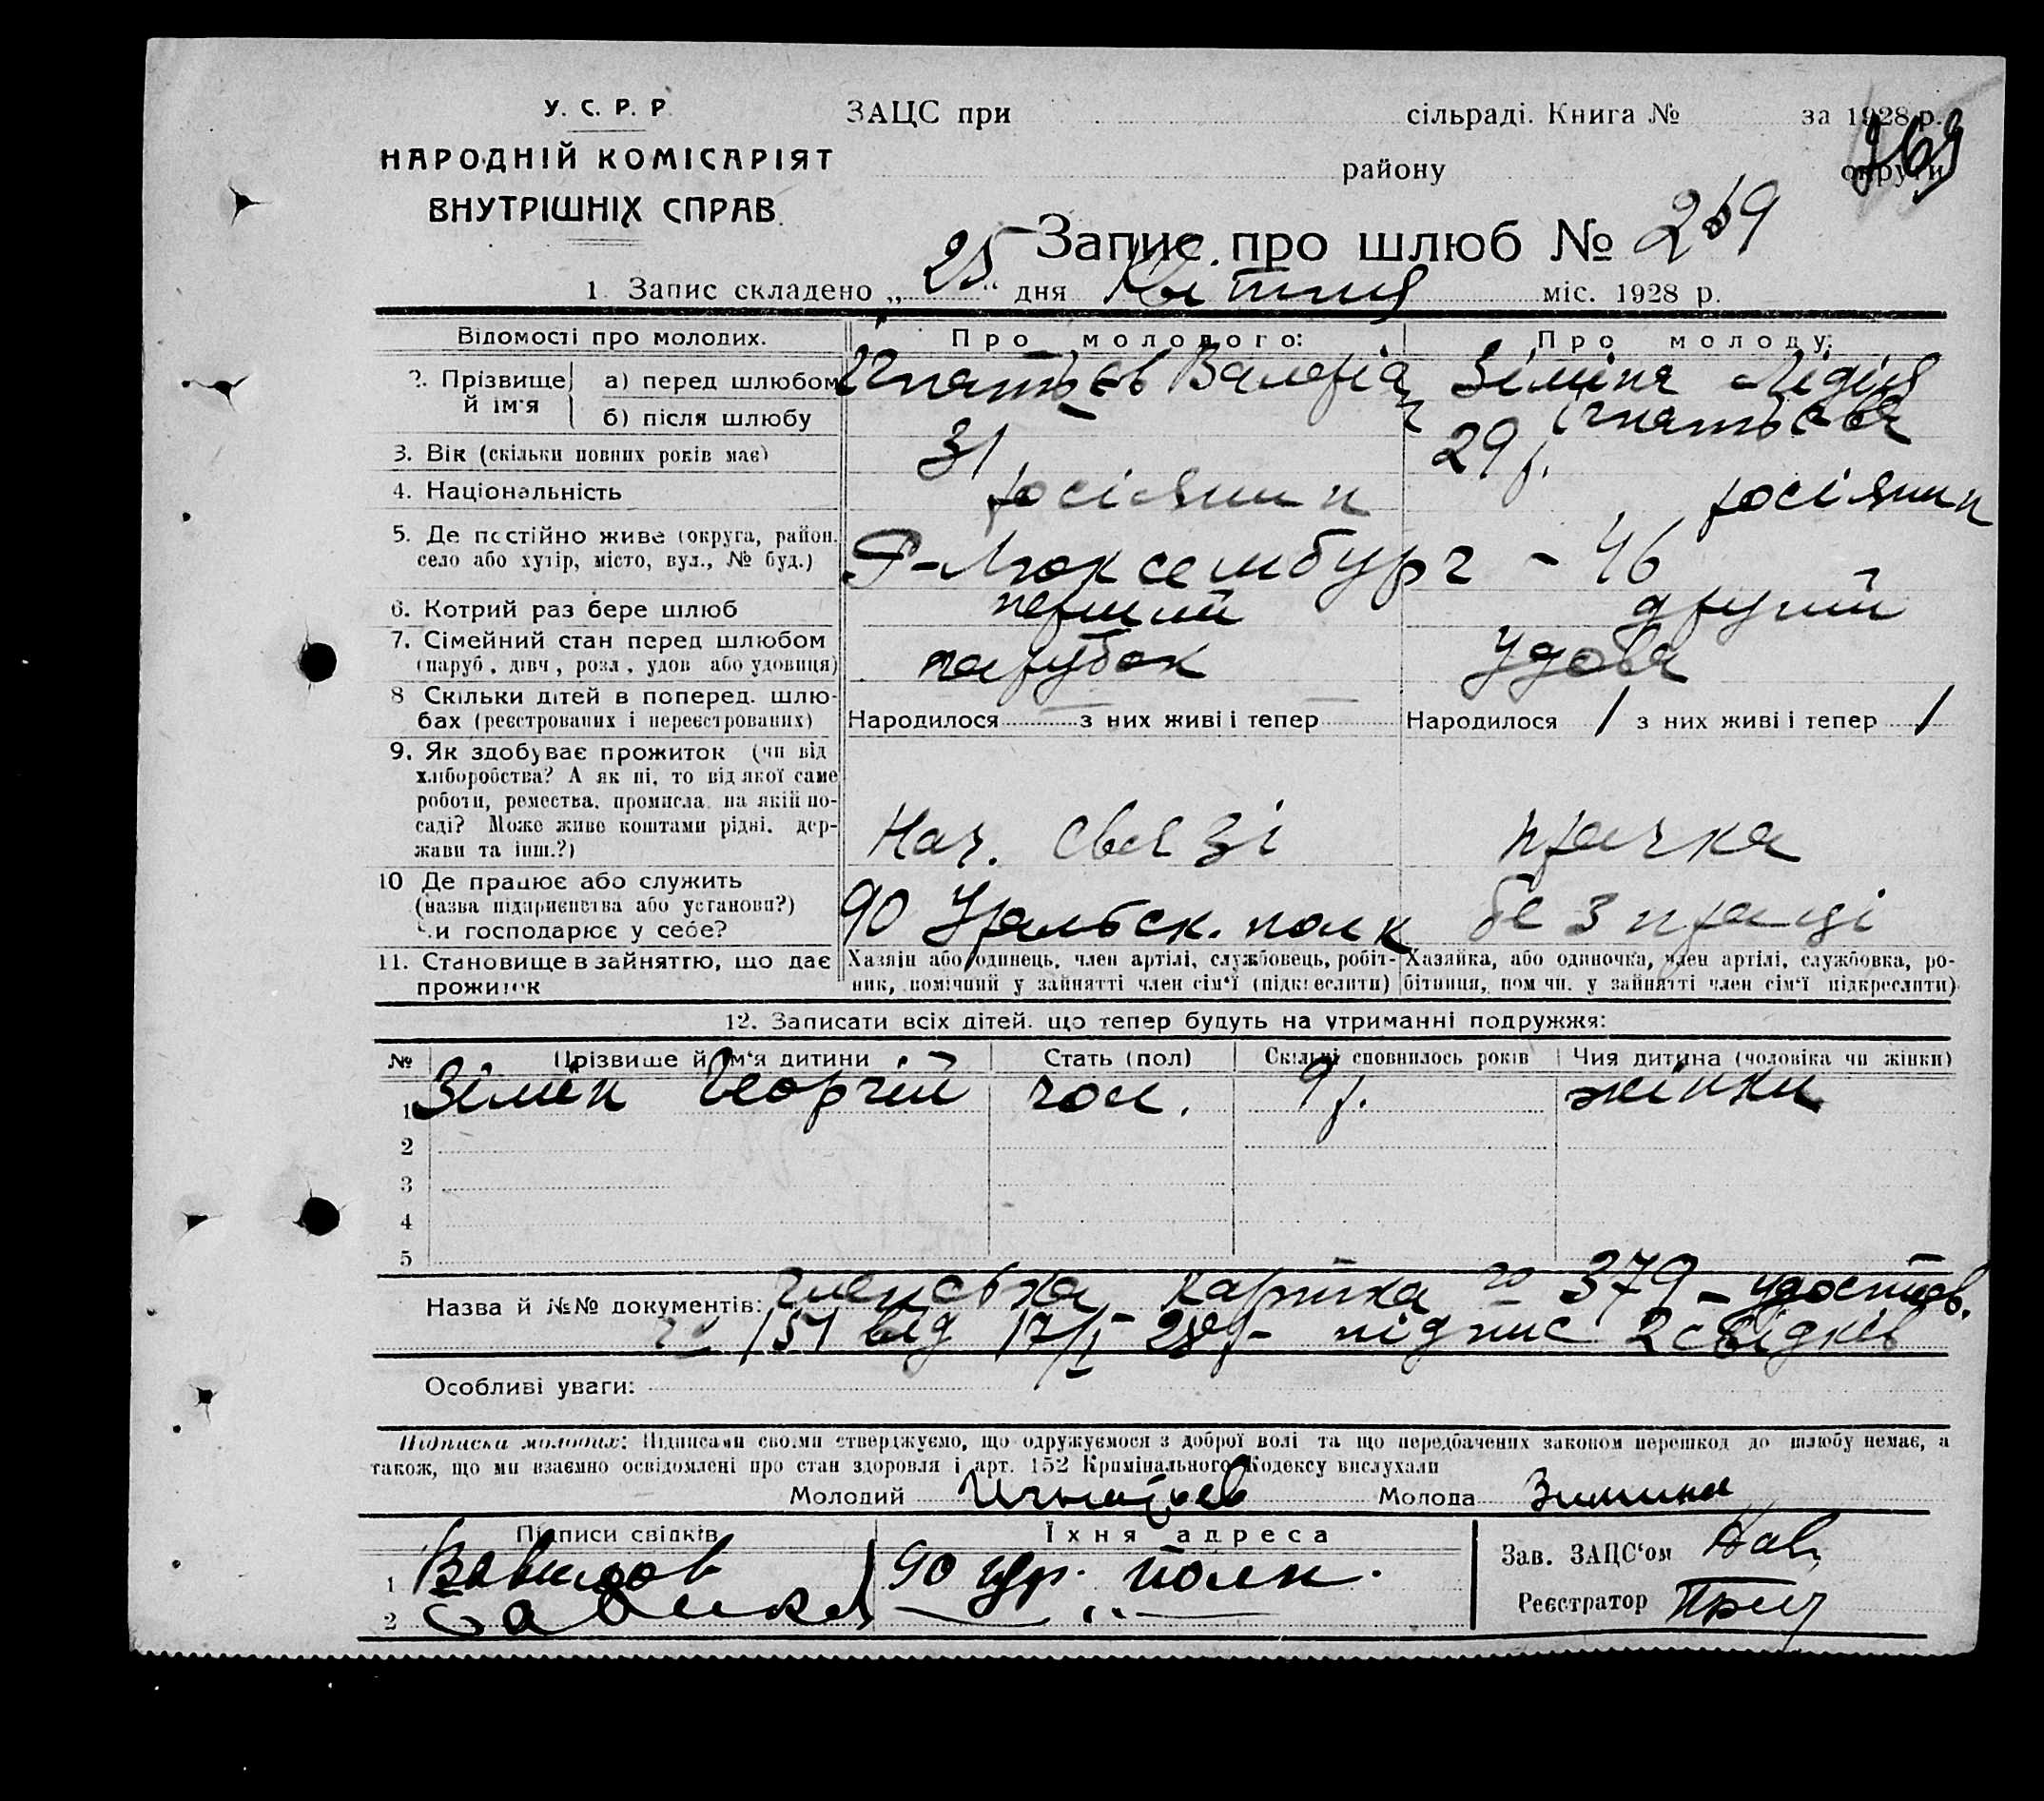 У. С. Р. Р.
НАРОДНІЙ КОМІСАРІЯТ
ВНУТРІШНІХ СПРАВ.
ЗАЦС при сільраді. Книга № за 1928 р.
району округи
Запис про шлюб № 269
1. Запис складено „25“ дня Квітня міс. 1928 р.
Відомості про молодих. Про молодого: Про молоду:
2. Прізвище й ім'я а) перед шлюбом Ігнатьєв Валеріан Зіміна Лідія
б) після шлюбу Ігнатьєва
3. Вік (скільки повних років має) 31 29 р.
4. Національність росіянин росіянин
5. Де постійно живе (округа, район, село або хутір, місто, вул., № буд.) Р-Люксембург - 46
6. Котрий раз бере шлюб перший другий
7. Сімейний стан перед шлюбом (паруб., дівч., розл., удов. або удовиця) парубок удова
8 Скільки дітей в поперед. шлюбах (реєстрованих і нереєстрованих) Народилося — з них живі і тепер — Народилося 1 з них живі і тепер 1
9. Як здобуває прожиток (чи від хліборобства? А як ні, то від якої саме роботи, ремества, промисла, на якій посаді? Може живе коштами рідні, держави та інш.?) Нач. связі прачка
10 Де працює або служить (назва підприємства або установи?) Чи господарює у себе? 90 Уральск. полк без праці
11. Становище в зайняттю, що дає прожиток Хазяїн або одинець, член артілі, службовець, робітник, помічний у зайнятті член сім'ї (підкреслити) Хазяйка, або одиночка, член артілі, службовка, робітниця, помічн. у зайнятті член сім'ї підкреслити)
12. Записати всіх дітей, що тепер будуть на утриманні подружжя:
№ Прізвище й ім'я дитини Стать (пол) Скільки сповнилось років Чия дитина (чоловіка чи жінки)
1 Зімін Георгій чол. 9 р. жінки
2
3
4
5
Назва й №№ документів: членська картка № 379 - удостов.
№ 151 від 17/I-28 р - підпис 2 свідків
Особливі уваги:
Підписка молодих: Підписами своїми стверджуємо, що одружуємося з доброї волі та що передбачених законом перешкод до шлюбу немає, а
також, що ми взаємно освідомлені про стан здоровля і арт. 152 Кримінального Кодексу вислухали
Молодий Игнатьев Молода Зимина
Підписи свідків Їхня адреса
1 Вавилов 90 Ур. полк.
2 — „ —
Зав. ЗАЦС'ом
Реєстратор